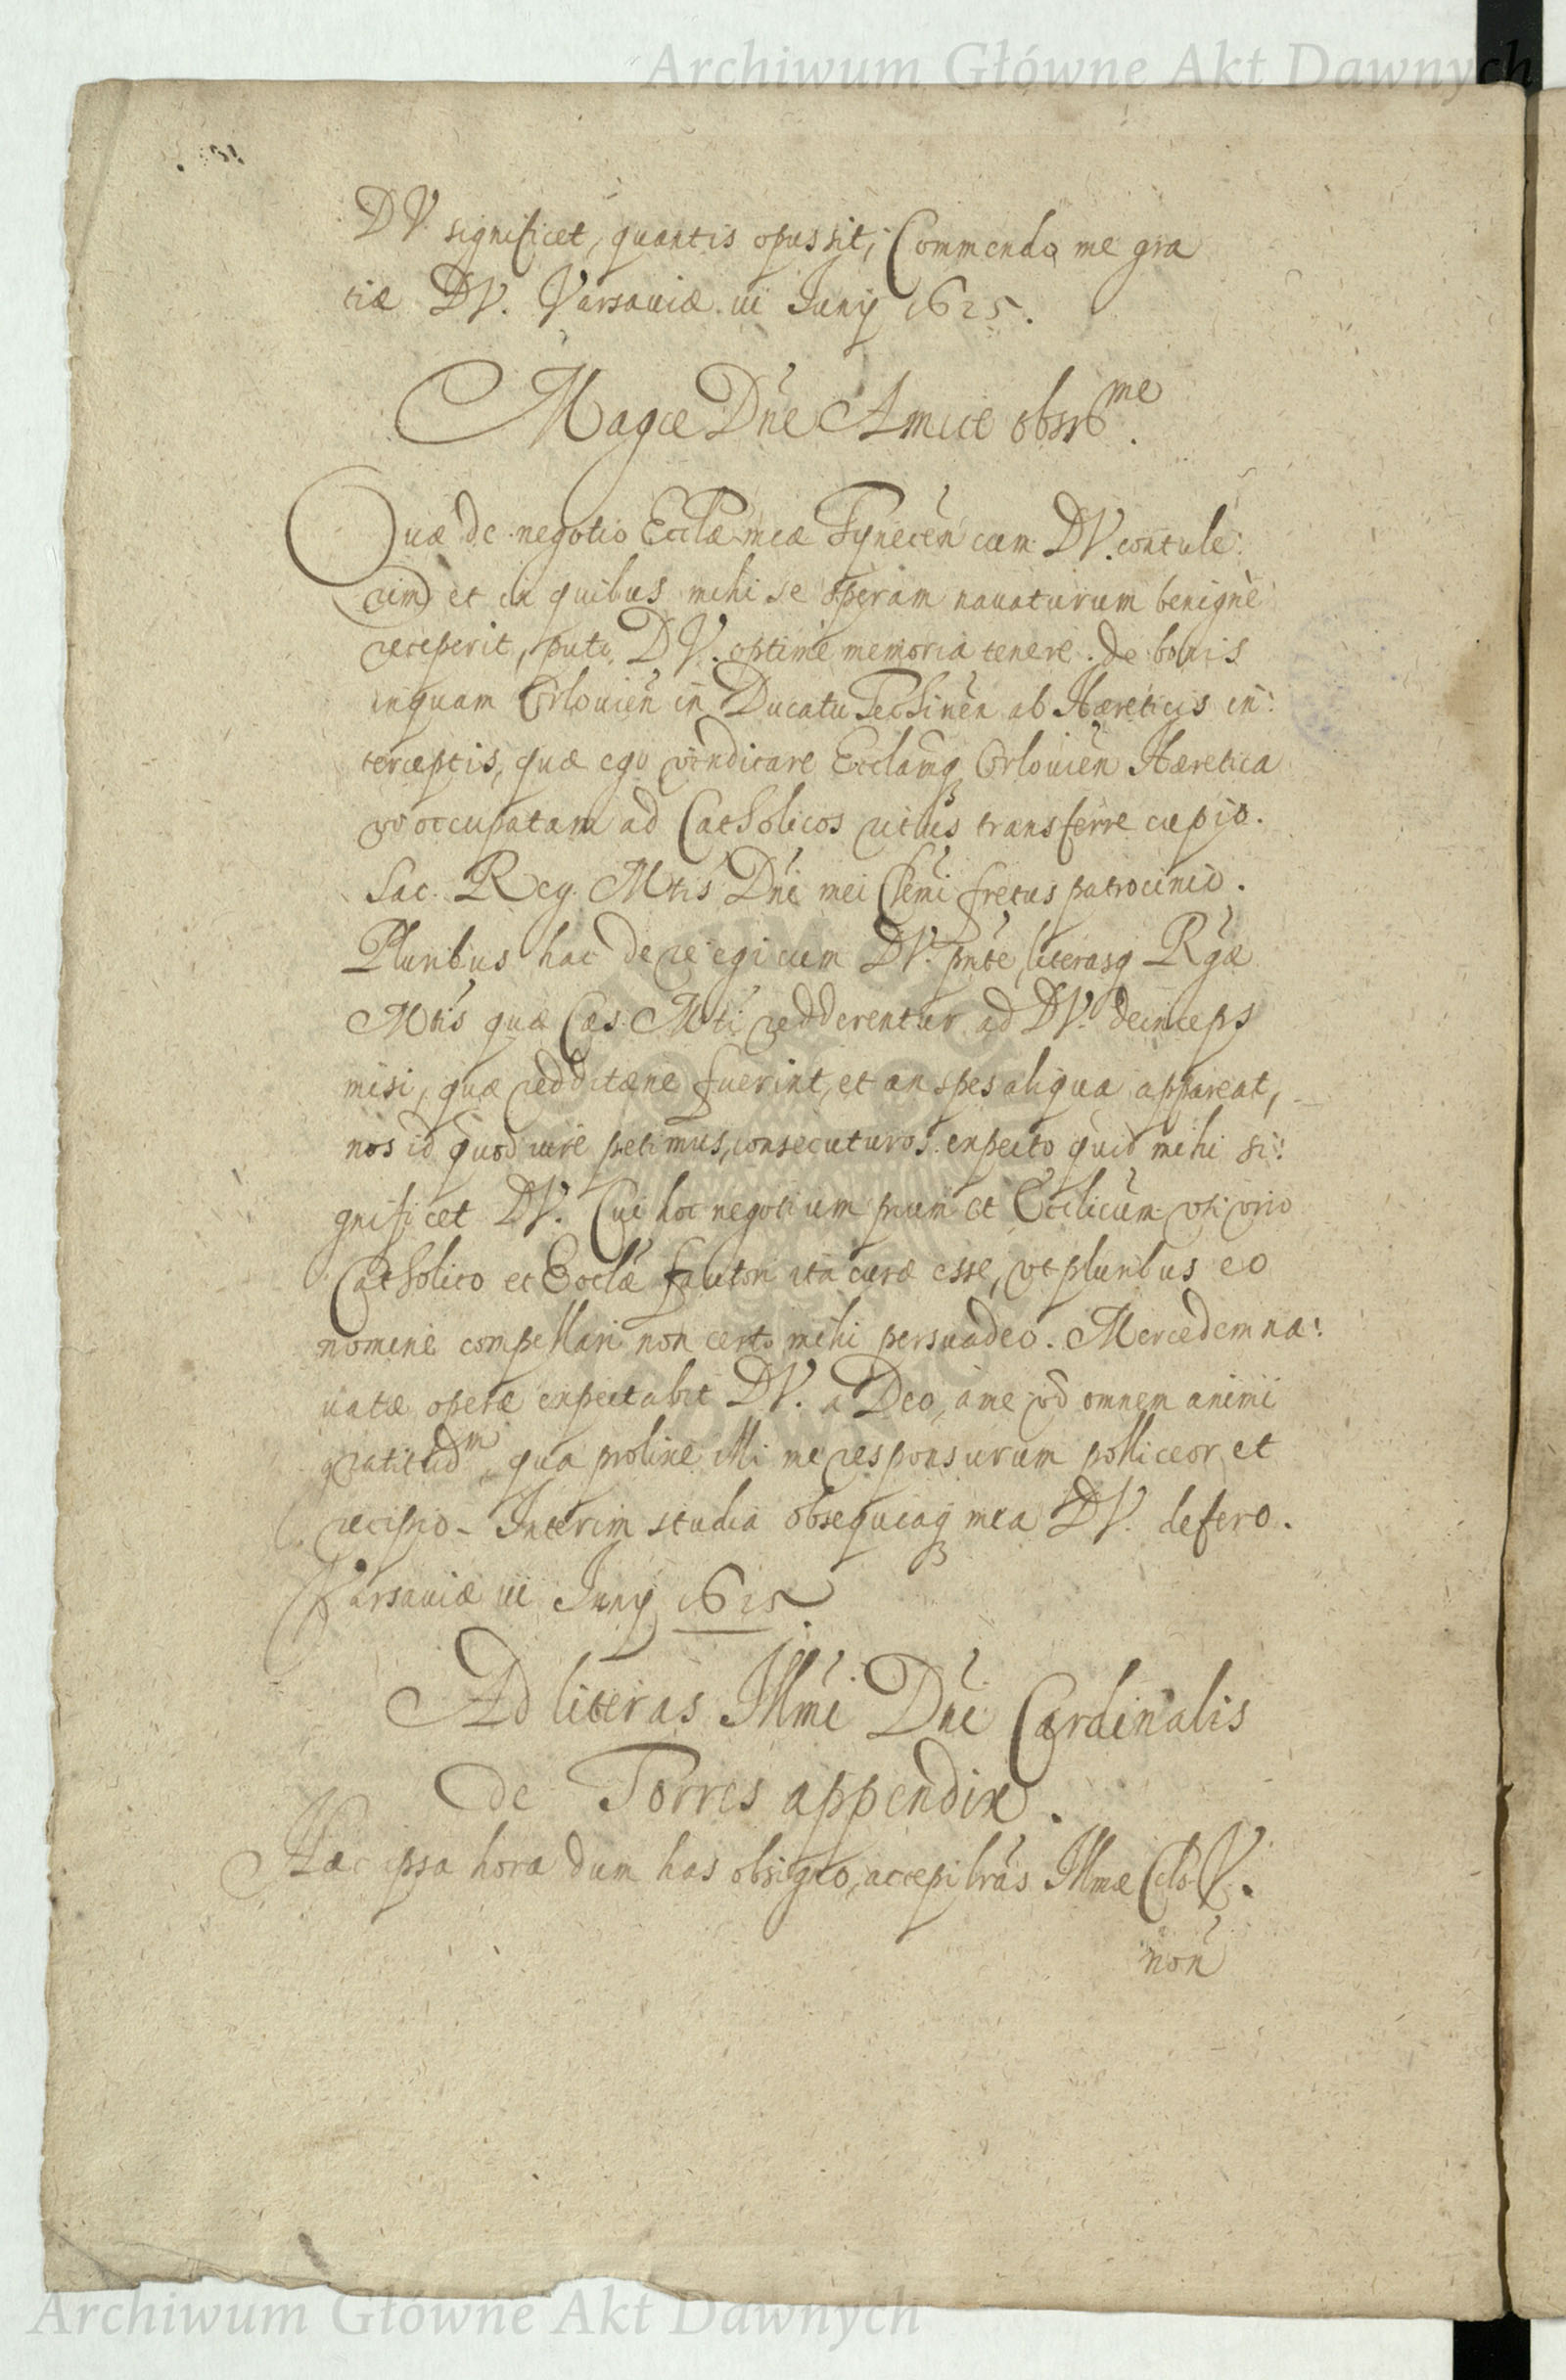 Archiwum Główne Akt Dawnych
DV. significet, quantis opus sit; Commendo me gra
tiæ DV. Varsauiæ. vi Junij 1625.
Magce Dne Amice obssme.
Quæ de negotio Ecclæ meæ Tynecen cum DV. contule:
rim et in quibus mihi se operam nauaturum benignè
receperit, puto DV. optime memoria tenere. de bonis
inquam Orlouien in Ducatu Teschinen ab Hæreticis in:
terceptis, quæ ego vindicare Ecclamq Orlouien Hæretica
vi occupatam ad Catholicos ritus transferre cupio.
Sac. Reg. Mtis Dni mei Clemi fretus patrocinio.
Pluribus hac de re egi cum DV. pnte, literasq Rgæ
Mtis quæ Cæs. Mti redderentur ad DV. deinceps
misi, quæ redditæne fuerint, et an spes aliqua appareat,
nos id quod iure petimus, consecuturos. expecto quid mihi si:
gnificet DV. Cui hoc negotium pium et Ecclicum vti viro
Catholico et Ecclæ fautori ita curæ esse, vt pluribus eo
nomine compellari non certo mihi persuadeo. Mercedem na:
uatæ operæ expectabit DV. a Deo, a me vd omnem animi
gratitudm, qua prolixe illi me responsurum polliceor et
recipio. Interim studia obsequiaq mea DV. defero.
Varsauiæ vi Junij 1625.
Ad literas Illmi Dni Cardinalis
de Torres appendix.
Hac ipsa hora dum has obsigno, accepi lras Illmæ Cels V.
non
Archiwum Główne Akt Dawnych